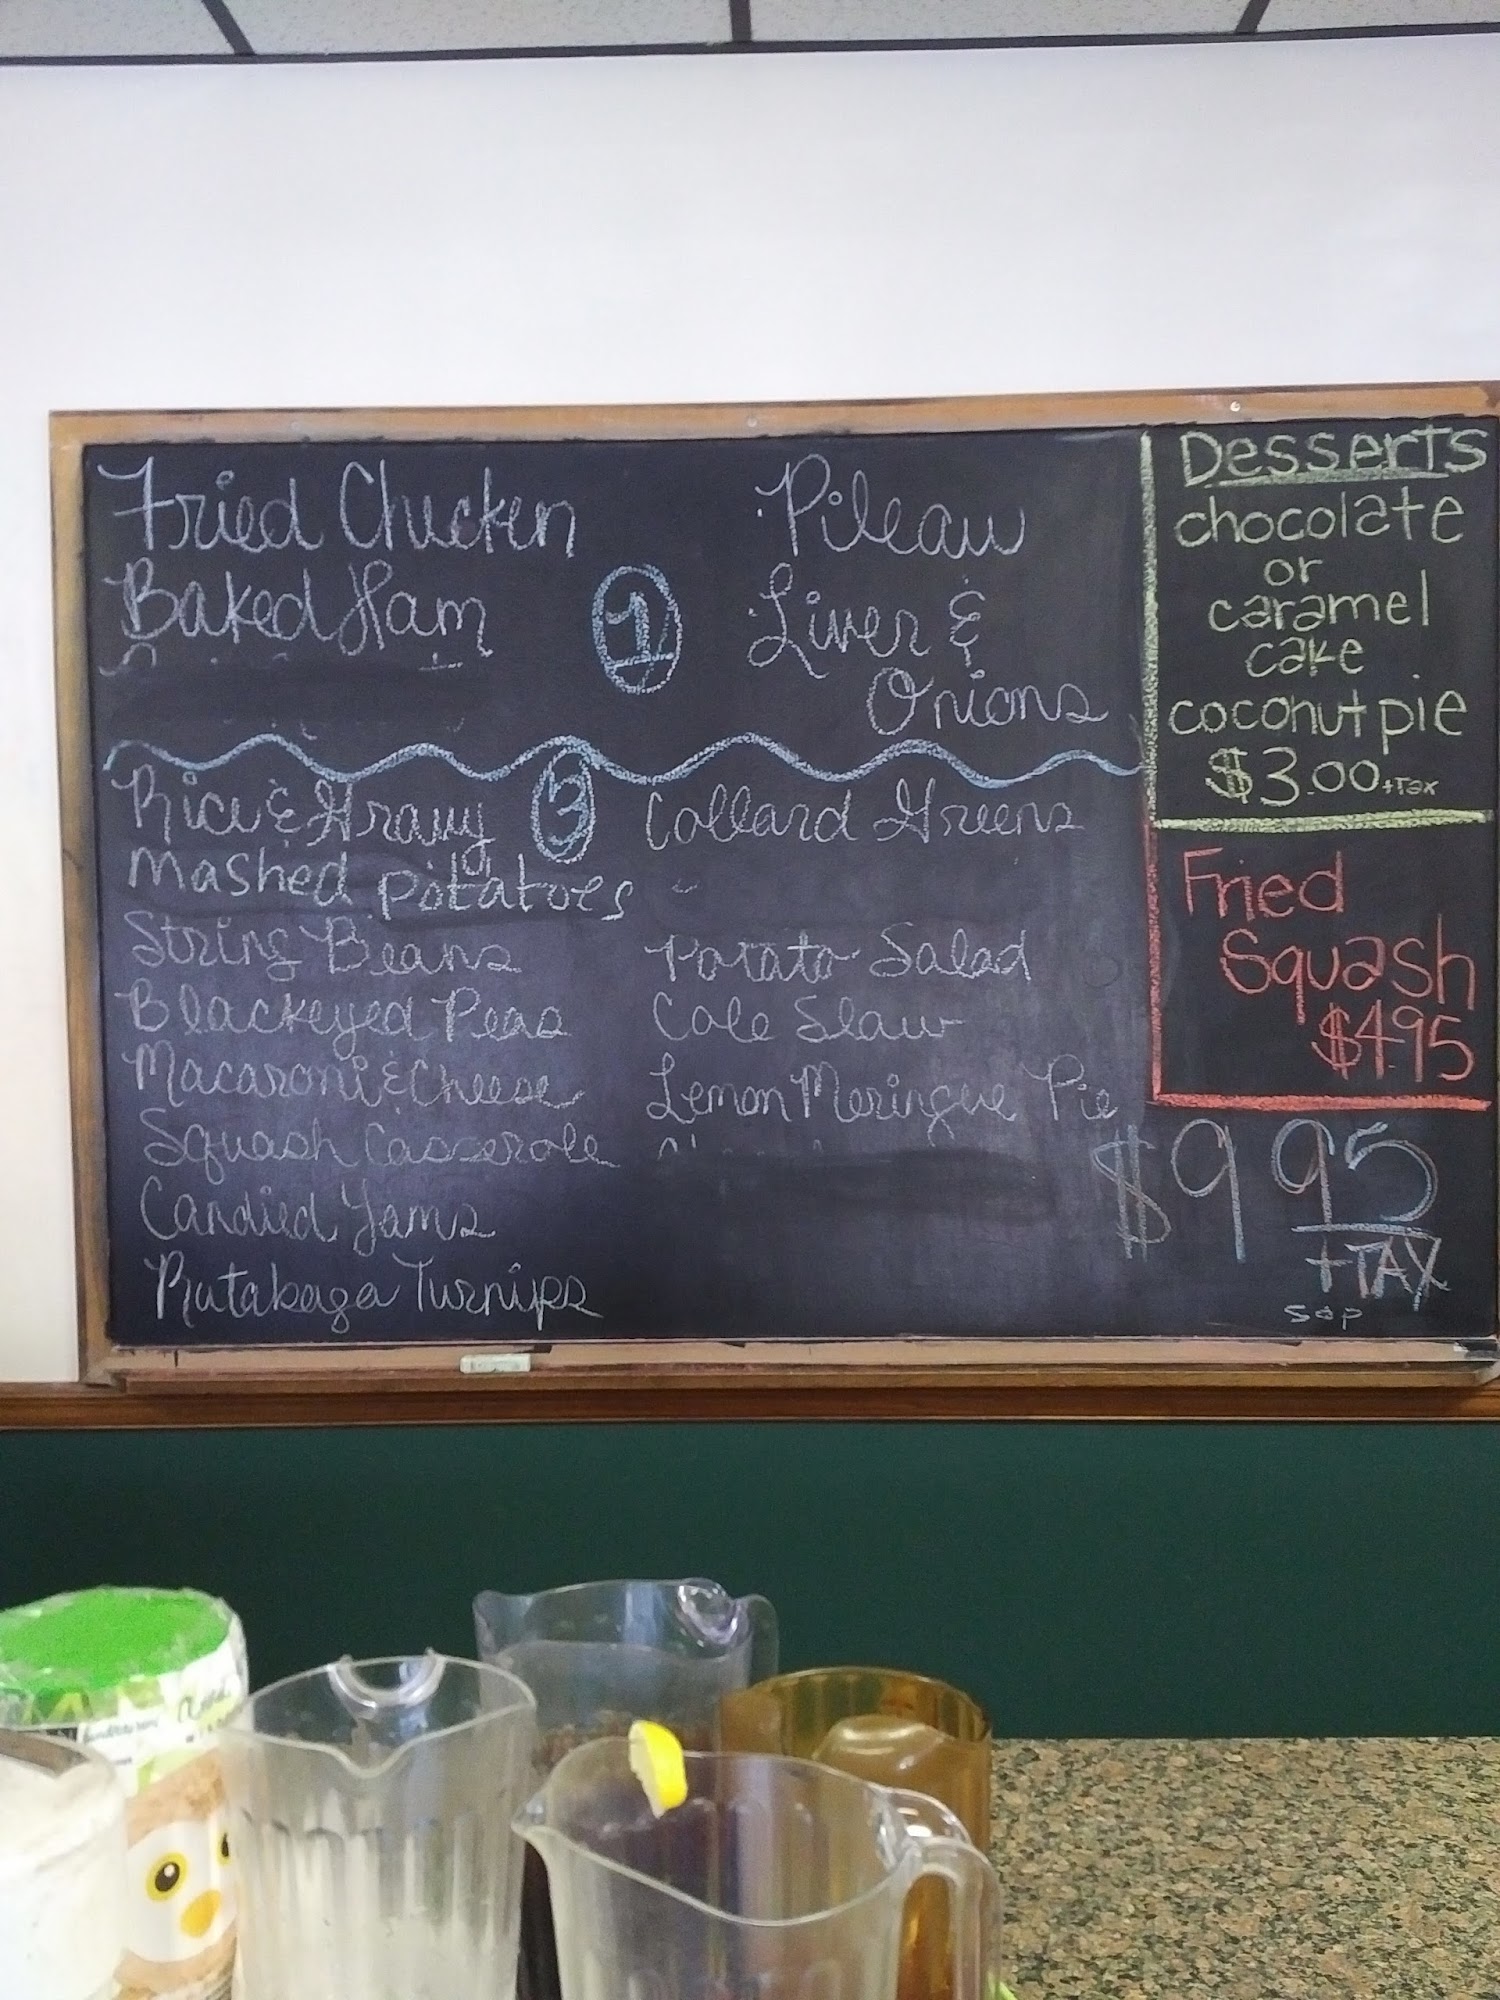 Fried Chicken
Baked Ham
1
Pileau
Liver &
Onions
Rice & Gravy
3
Mashed Potatoes
String Beans
Blackeyed Peas
Macaroni & Cheese
Squash Casserole
Candied Yams
Rutabaga Turnips
Collard Greens
Potato Salad
Cole Slaw
Lemon Meringue Pie
Desserts
chocolate
or
caramel
cake
coconut pie
$3.00 +Tax
Fried
Squash
$4.95
$9 95
+TAX